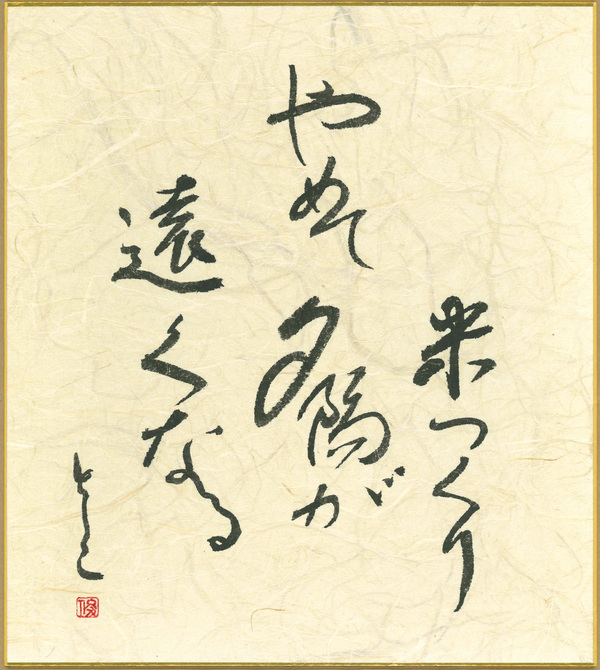 米つくり
やめて夕陽が
遠くなる
としこ